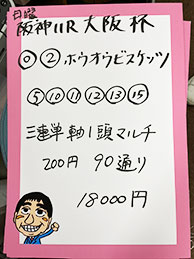 日曜
阪神11R 大阪杯
◎ ② ホウオウビスケッツ
⑤ ⑩ ⑪ ⑫ ⑬ ⑮
三連単軸1頭マルチ
200円 90通り
18000円